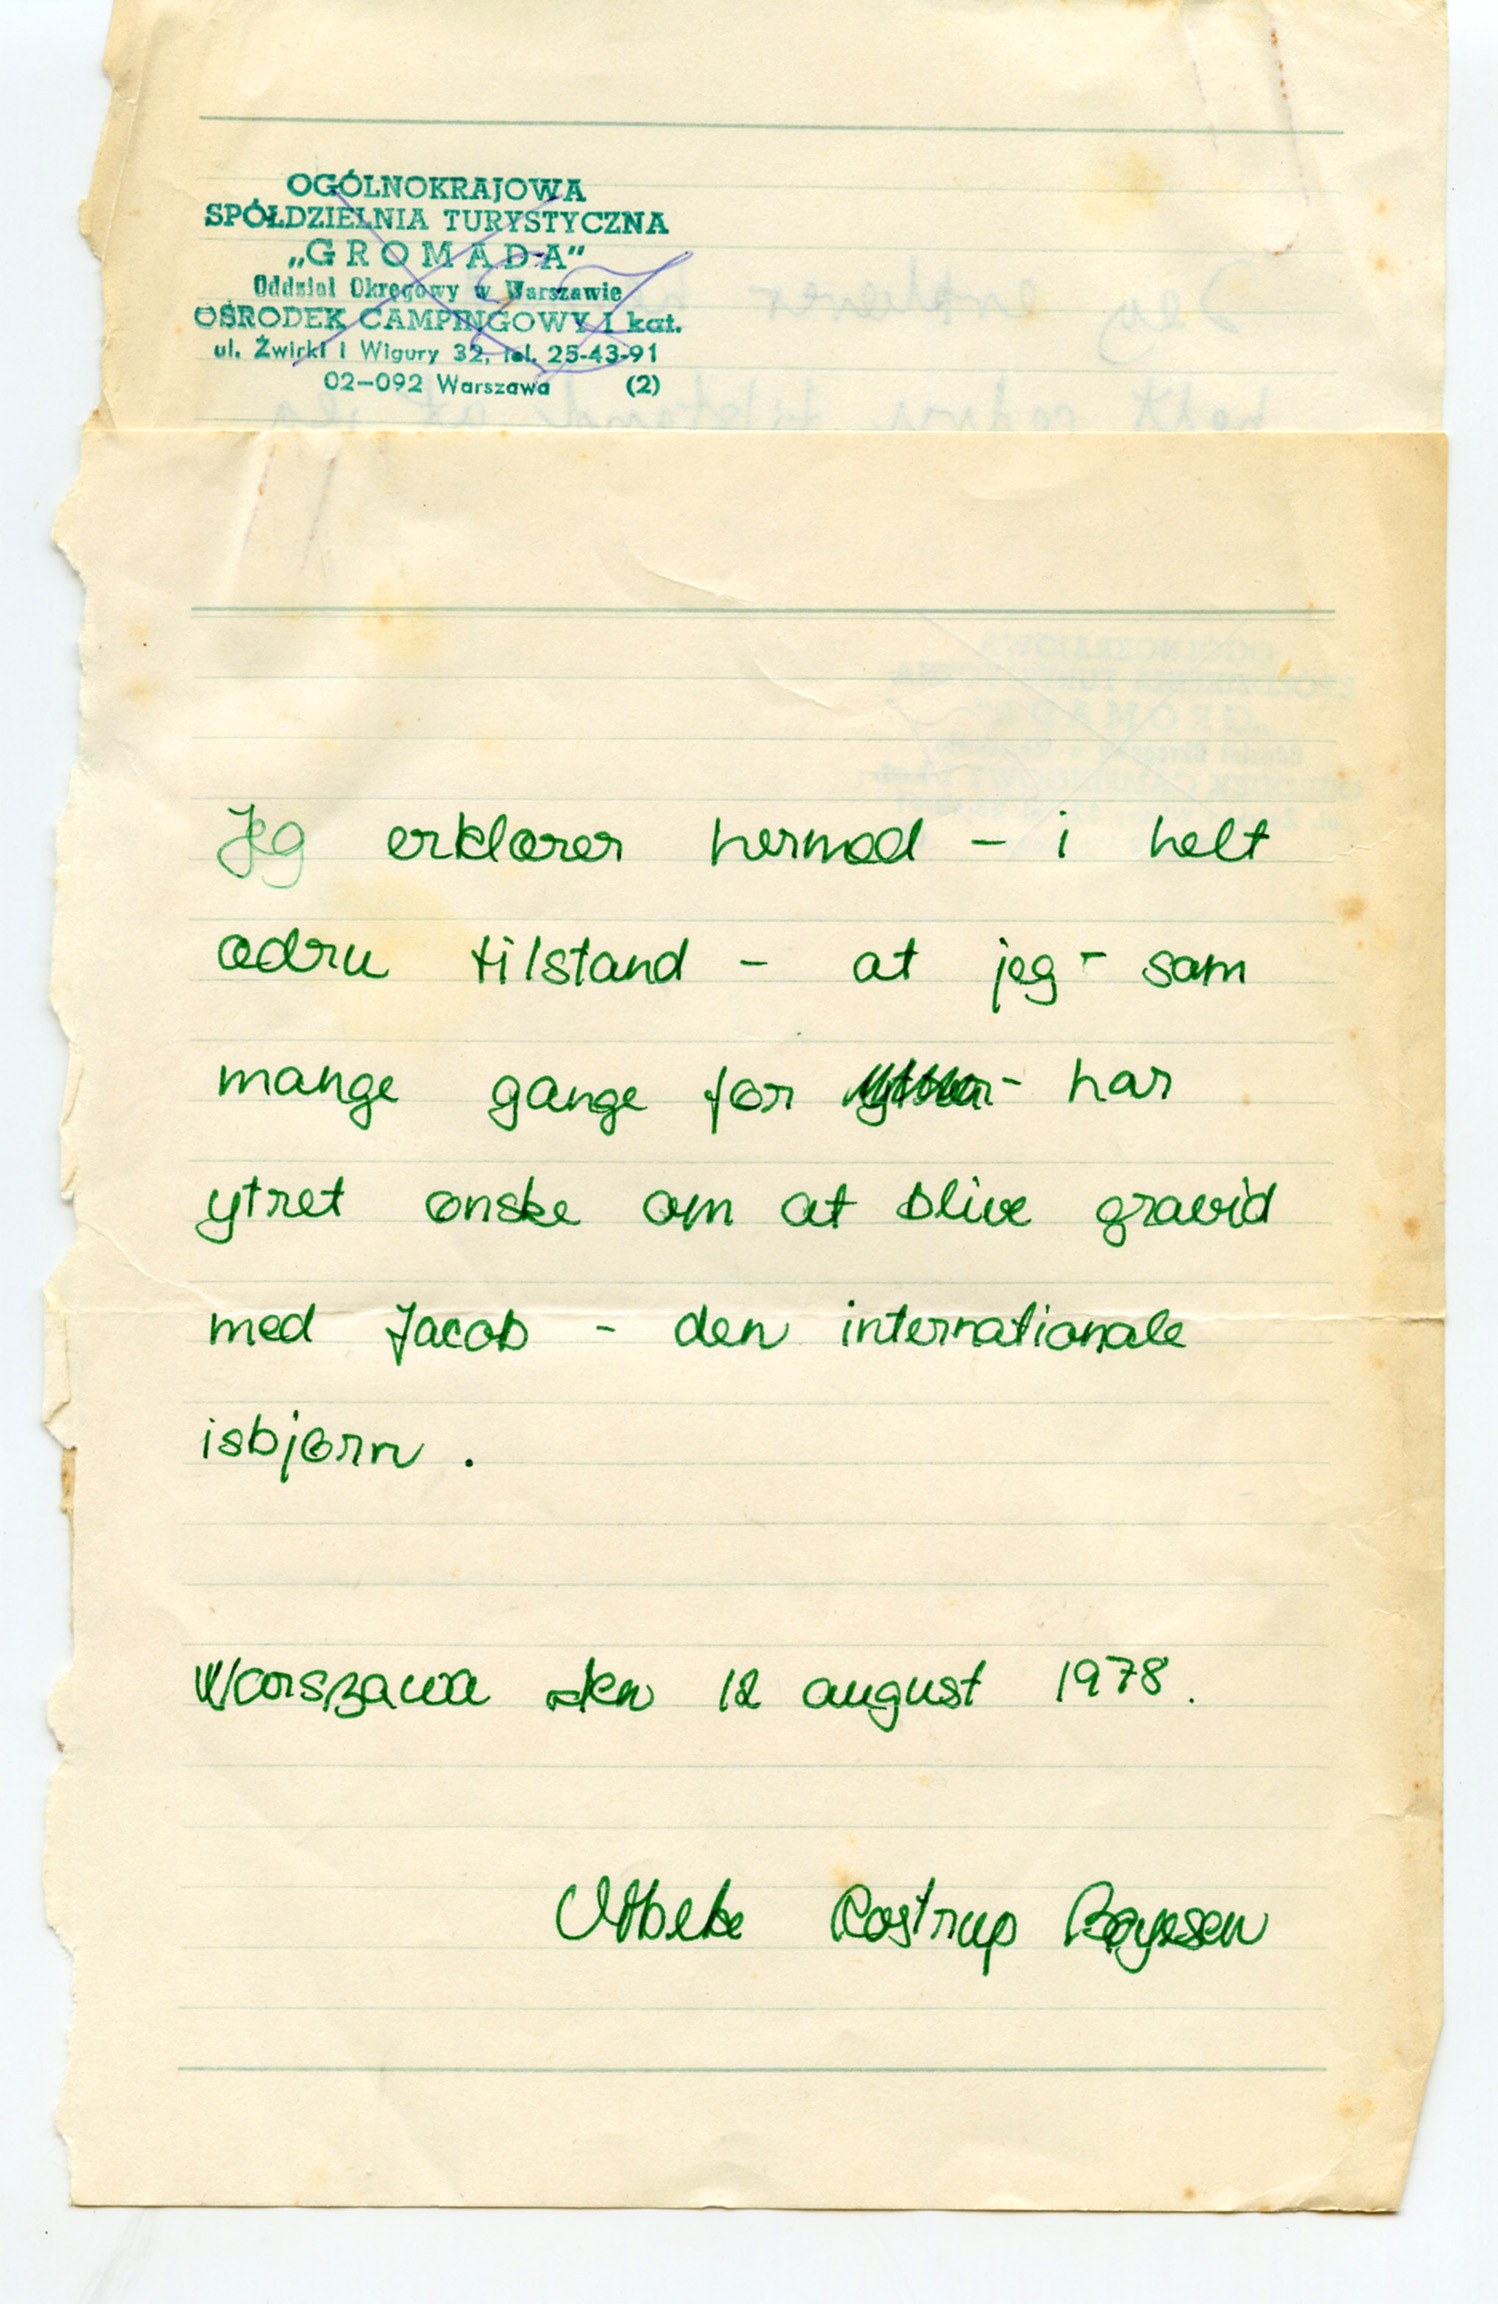 OGÓLNOKRAJOWA
SPÓŁDZIELNIA TURYSTYCZNA
„GROMADA”
Oddział Okręgowy w Warszawie
OŚRODEK CAMPINGOWY I kat.
ul. Żwirki i Wigury 32, tel. 25-43-91
02-092 Warszawa (2)
Jeg erklærer hermed – i helt
ædru tilstand – at jeg – som
mange gange før – har
ytret ønske om at blive gravid
med Jacob – den internationale
isbjørn.
Warszawa den 12 august 1978.
Vibeke Rostrup Bøyesen